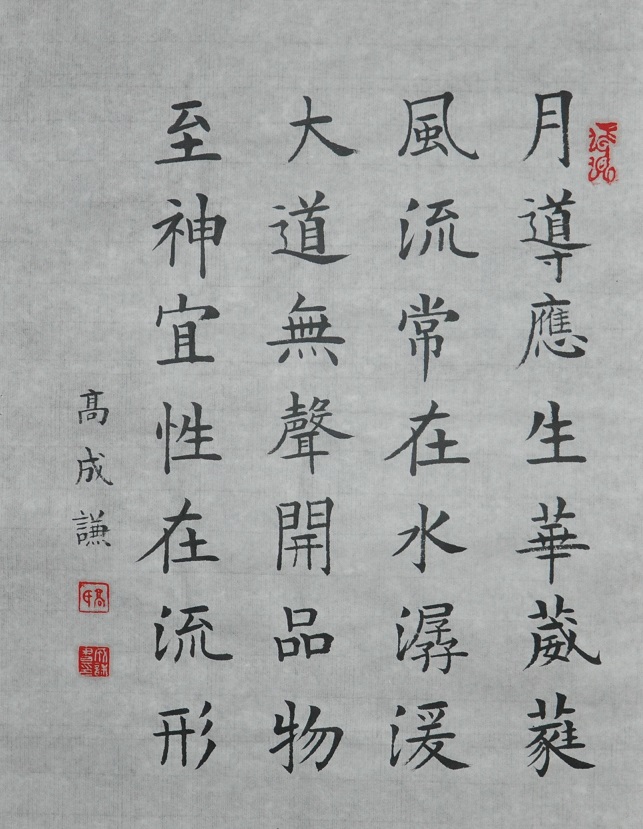 月導應生華葳蕤
風流常在水潺湲
大道無聲開品物
至神宜性在流形
高成謙